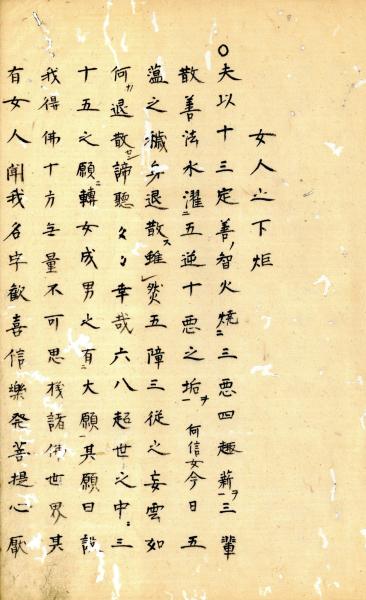 女人之下炬
○夫以十三定善ノ智火焼ニ三悪四趣薪ヲ一三輩
散善法水濯ニ五逆十悪之垢ヲ一何信女今日五
薀之穢身退散ス雖レ然五障三従之妄雲如
何ガ退散セン諦聴々々幸哉六八超世之中ニ三
十五之願ニ轉女成男之有ニ大願一其願曰設
我得佛十方無量不可思議諸佛世界其
有女人聞我名字歓喜信樂発菩提心厭